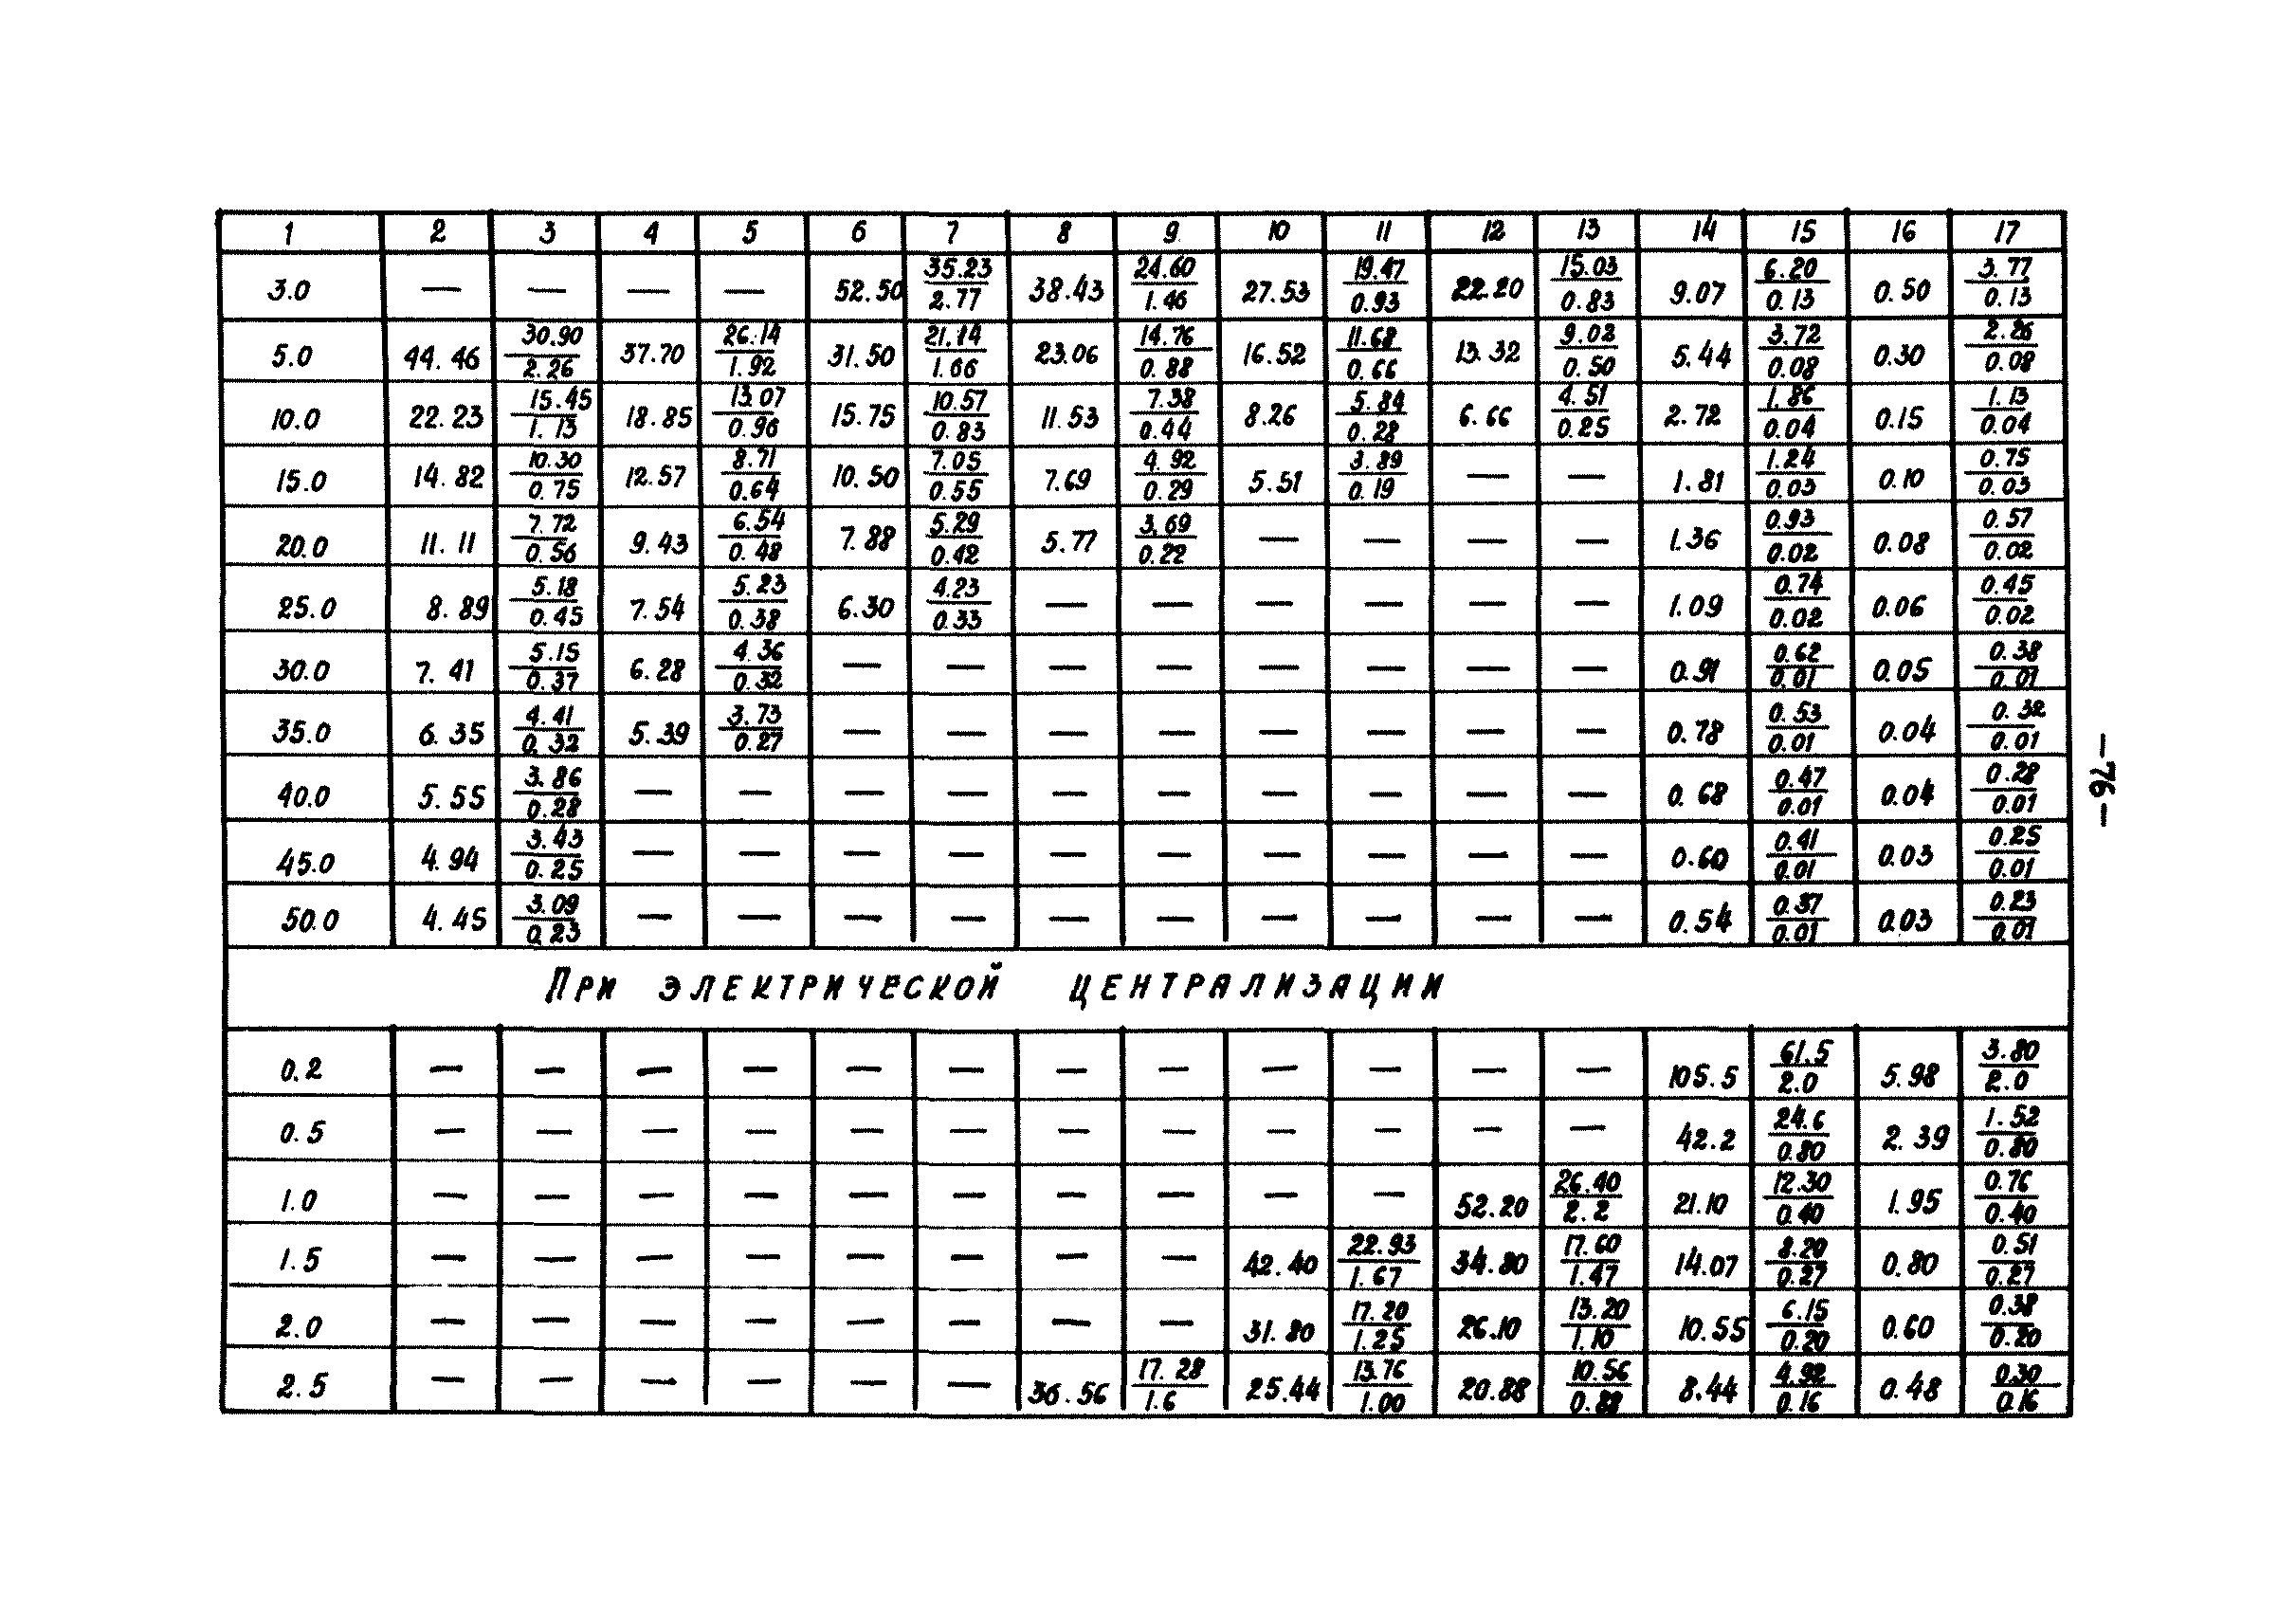 1 2 3 4 5 6 7 8 9 10 11 12 13 14 15 16 17
3.0 — — — — 52.50 35.23/2.77 38.43 24.60/1.46 27.53 19.47/0.93 22.20 15.03/0.83 9.07 6.20/0.13 0.50 3.77/0.13
5.0 44.46 30.90/2.26 37.70 26.14/1.92 31.50 21.14/1.66 23.06 14.76/0.88 16.52 11.68/0.66 13.32 9.02/0.50 5.44 3.72/0.08 0.30 2.26/0.08
10.0 22.23 15.45/1.13 18.85 13.07/0.96 15.75 10.57/0.83 11.53 7.38/0.44 8.26 5.84/0.28 6.66 4.51/0.25 2.72 1.86/0.04 0.15 1.13/0.04
15.0 14.82 10.30/0.75 12.57 8.71/0.64 10.50 7.05/0.55 7.69 4.92/0.29 5.51 3.89/0.19 — — 1.81 1.24/0.03 0.10 0.75/0.03
20.0 11.11 7.72/0.56 9.43 6.54/0.48 7.88 5.29/0.42 5.77 3.69/0.22 — — — — 1.36 0.93/0.02 0.08 0.57/0.02
25.0 8.89 5.18/0.45 7.54 5.23/0.38 6.30 4.23/0.33 — — — — — — 1.09 0.74/0.02 0.06 0.45/0.02
30.0 7.41 5.15/0.37 6.28 4.36/0.32 — — — — — — — — 0.91 0.62/0.01 0.05 0.38/0.01
35.0 6.35 4.41/0.32 5.39 3.73/0.27 — — — — — — — — 0.78 0.53/0.01 0.04 0.32/0.01
40.0 5.55 3.86/0.28 — — — — — — — — — — 0.68 0.47/0.01 0.04 0.28/0.01
45.0 4.94 3.43/0.25 — — — — — — — — — — 0.60 0.41/0.01 0.03 0.25/0.01
50.0 4.45 3.09/0.23 — — — — — — — — — — 0.54 0.37/0.01 0.03 0.23/0.01
При электрической централизации
0.2 — — — — — — — — — — — — 105.5 61.5/2.0 5.98 3.80/2.0
0.5 — — — — — — — — — — — — 42.2 24.6/0.80 2.39 1.52/0.80
1.0 — — — — — — — — — — 52.20 26.40/2.2 21.10 12.30/0.40 1.95 0.76/0.40
1.5 — — — — — — — — 42.40 22.93/1.67 34.80 17.60/1.47 14.07 8.20/0.27 0.80 0.51/0.27
2.0 — — — — — — — — 31.80 17.20/1.25 26.10 13.20/1.10 10.55 6.15/0.20 0.60 0.38/0.20
2.5 — — — — — — 36.56 17.28/1.6 25.44 13.76/1.00 20.88 10.56/0.88 8.44 4.92/0.16 0.48 0.30/0.16
-76-